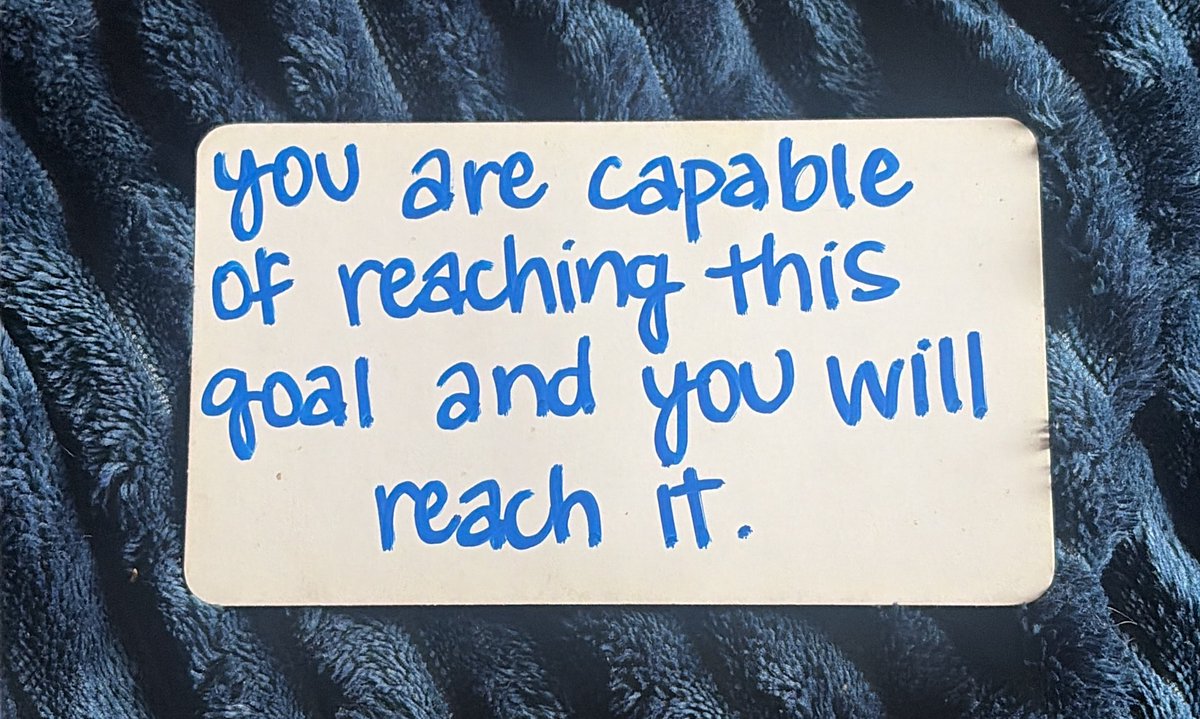 you are capable
of reaching this
goal and you will
reach it.